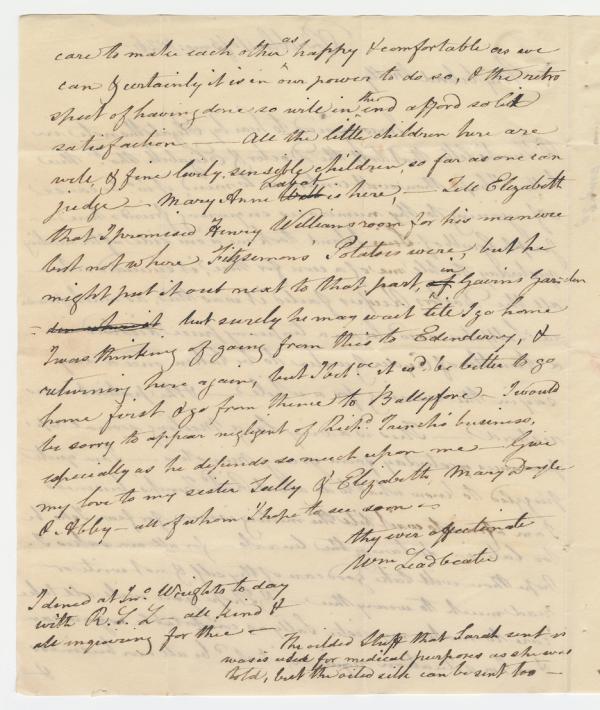 care to make each other as happy & comfortable as we
can & certainly it is in our power to do so, & the retro
spect of having done so will in the end afford solid
satisfaction — All the little children here are
well, & fine lively, sensible children, so far as one can
judge — Mary Anne Labat is here, — Tell Elizabeth
that I promised Henry Williams room for his manure
but not where Fitzsemon's Potatoes were, but he
might put it out next to that part, in Gavins Garden
but surely he may wait till I go home
I was thinking of going from this to Edenderry, &
returning here again, but I belve it wd be better to go
home first & go from thence to Ballyfore — I would
be sorry to appear negligent of Richd. Trench's business,
especially as he depends so much upon me — Give
my love to my sister Sally & Elizabeth, Mary Doyle
& Abby — all of whom I hope to see soon —
thy ever affectionate
Wm Leadbeater
I dined at Jno. Wrights to day
with R. S. L all kind &
all inquiring for thee —
The oiled Stuff that Sarah sent is
was used for medical purposes as she was
told, but the oiled silk can be sent too —